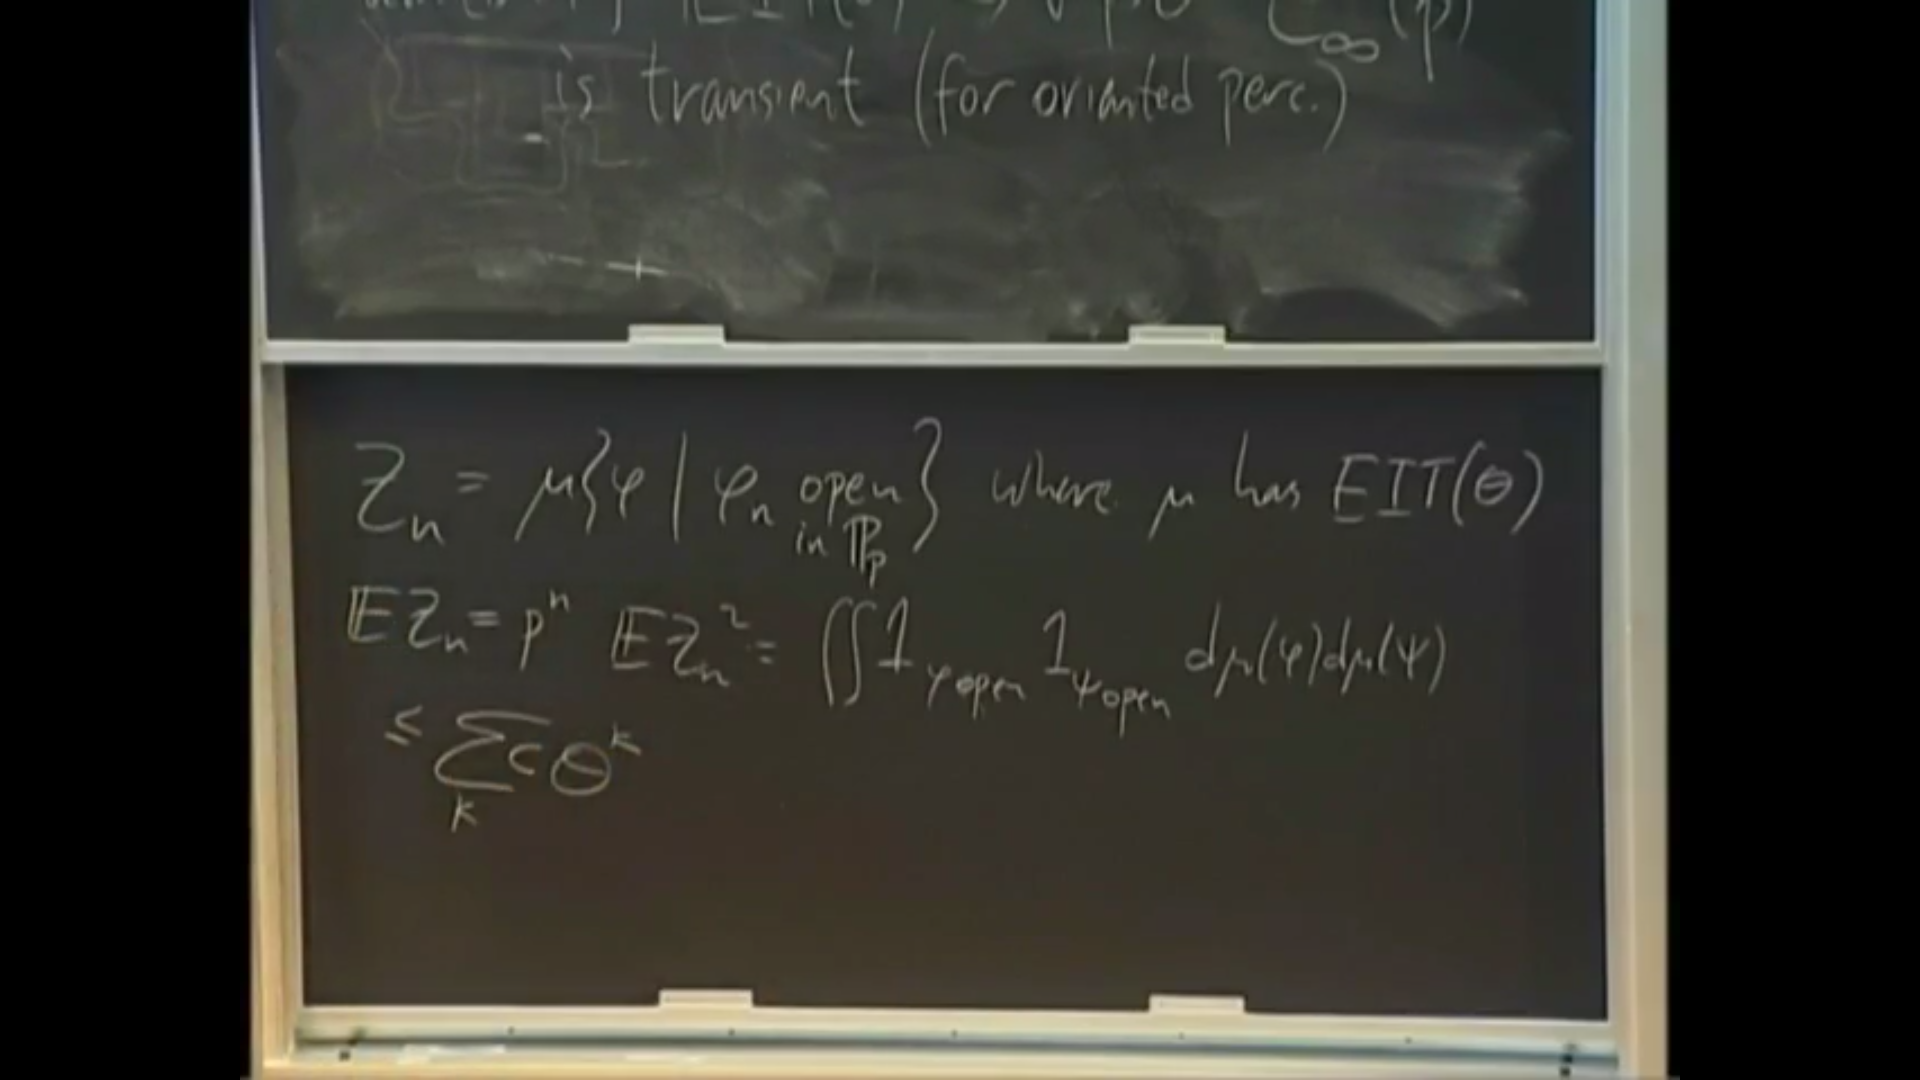 EIT(θ) ⇒ ∀ p>θ C∞(p)
is transient (for oriented perc.)
Zn = μ{φ | φn open in ℙp} where μ has EIT(θ)
𝔼Zn = pⁿ 𝔼Zn² = ∬ 1φ open 1ψ open dμ(φ)dμ(ψ)
≤ Σk Cθᵏ